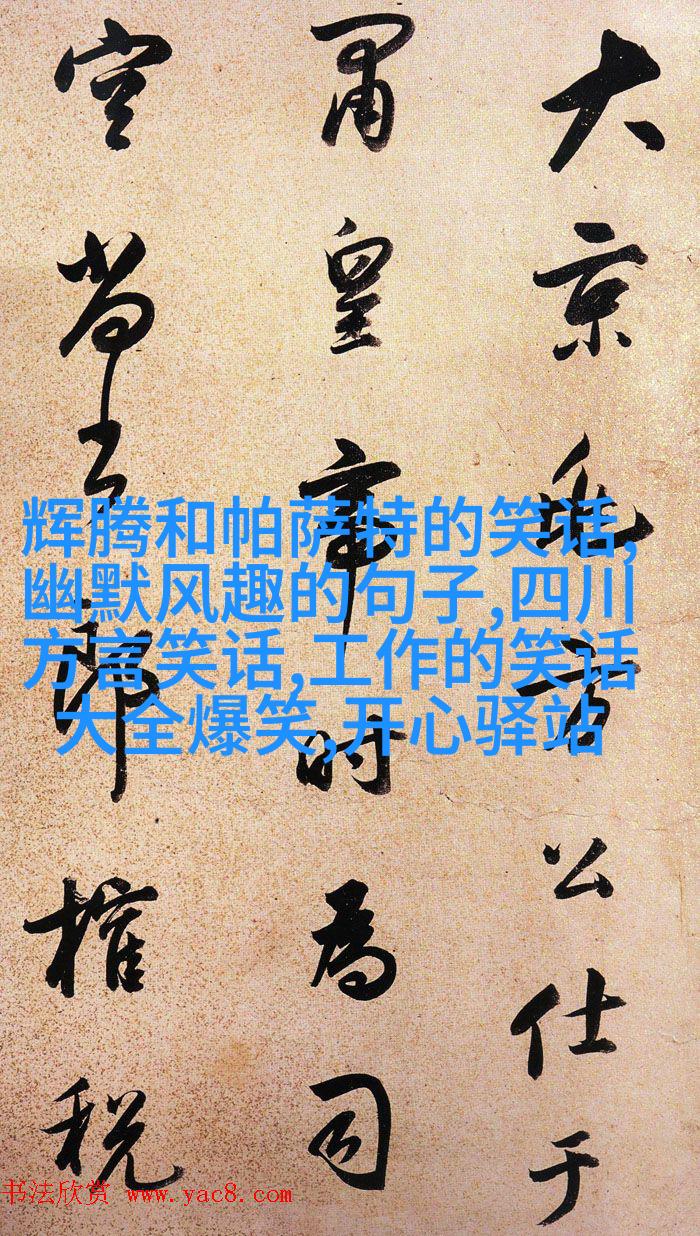 大京兆方公仕于
肅皇帝时為司
空尚书郎榷税
辉腾和帕萨特的笑话,
幽默风趣的句子,四川
方言笑话,工作的笑话
大全爆笑,开心驿站
书法欣赏 www.yac8.com